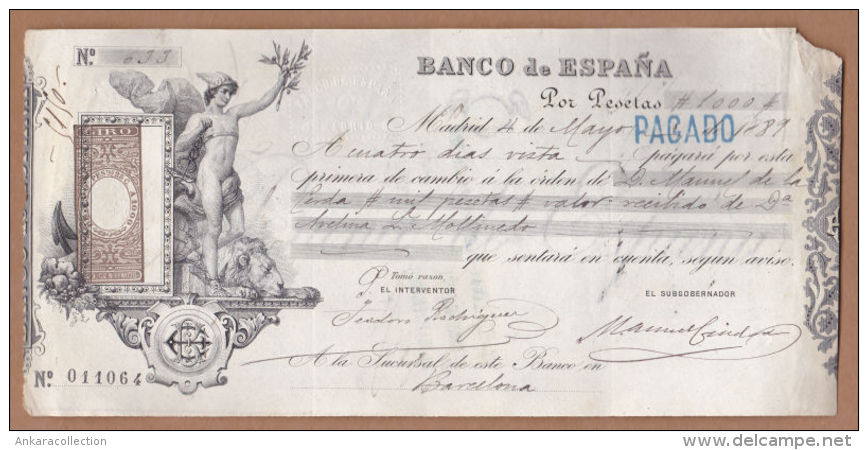 Nº 633
BANCO de ESPAÑA
Por Pesetas # 1000 #
Madrid 4 de Mayo de 1889
PAGADO
A cuatro dias vista pagará por esta
primera de cambio á la órden de D. Manuel de la
Cerda # mil pesetas # valor recibido de Da
Avelina L. Mollinedo
que sentará en cuenta, segun aviso.
GIRO
Tomó razon,
EL INTERVENTOR
EL SUBGOBERNADOR
Teodoro Rodriguez
Manuel
A la Sucursal de este Banco en
Barcelona
Nº 011064
Ankaracollection
www.delcampe.net